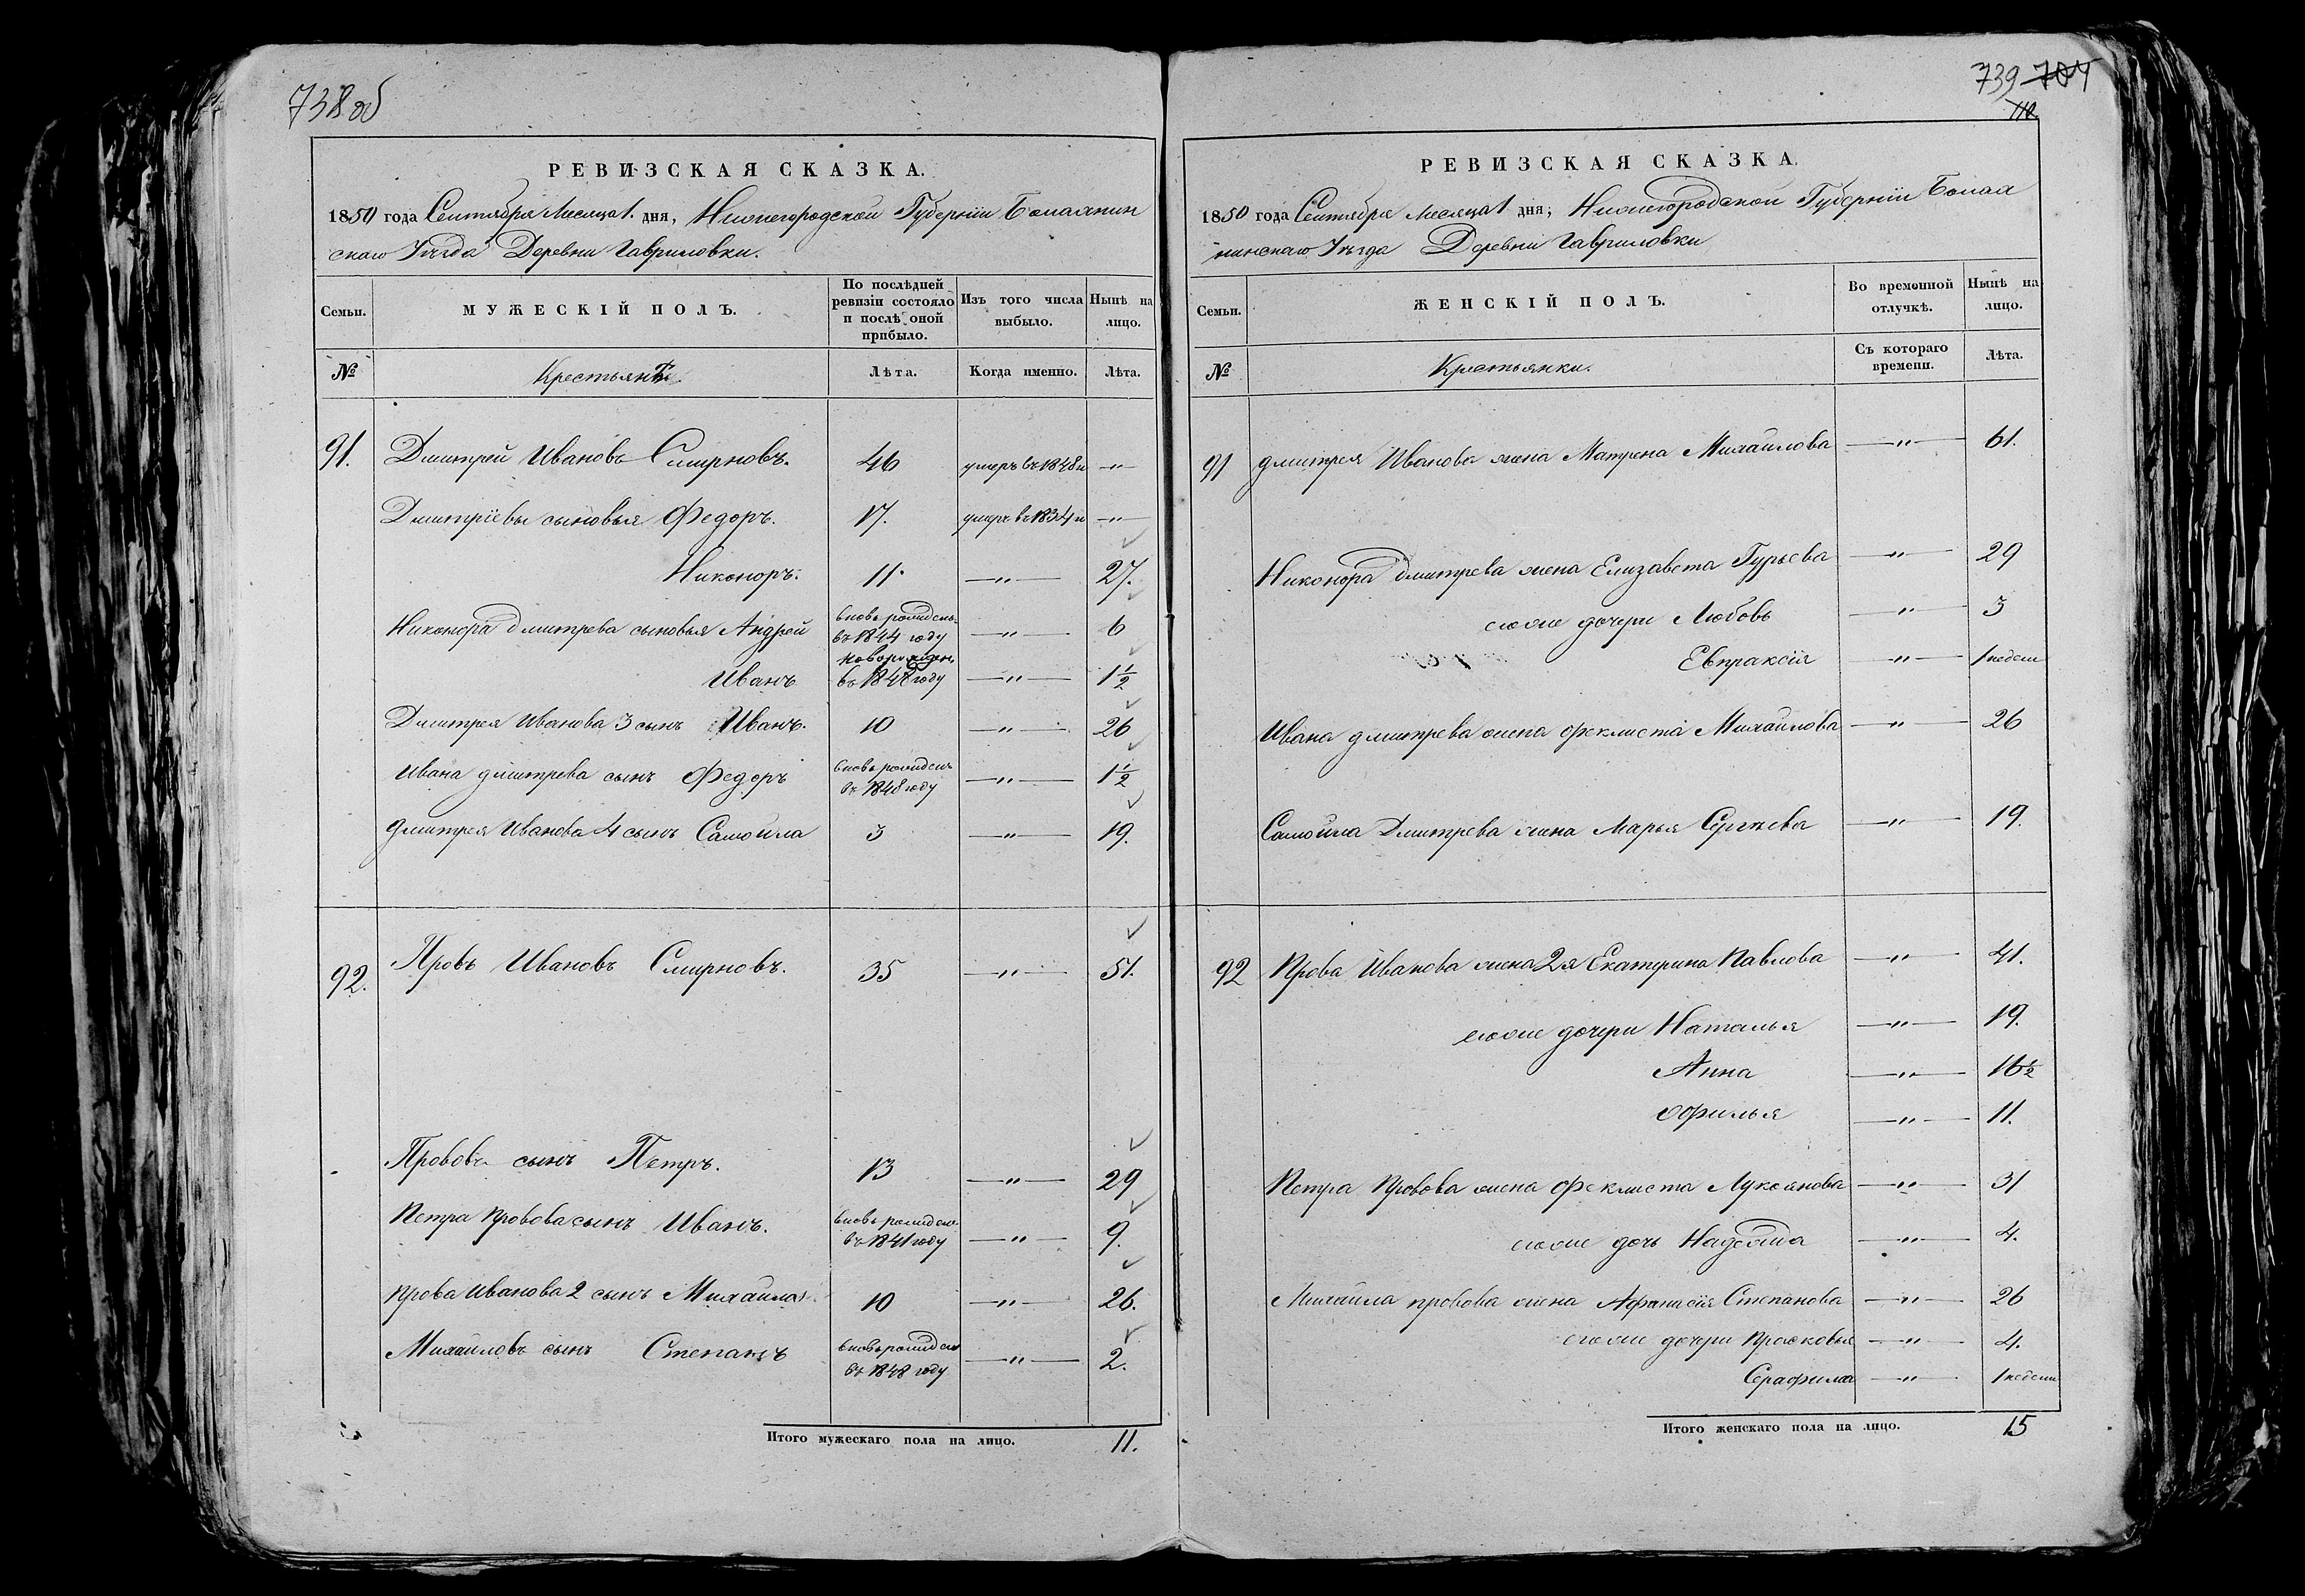 738об
РЕВИЗСКАЯ СКАЗКА.
1850 года Сентября Месяца 1. дня, Нижегородской Губернїи Балахнин
скаго Уѣзда Деревни Гавриловки.
Семьи.
МУЖЕСКІЙ ПОЛЪ.
По послѣдней ревизіи состояло и послѣ оной прибыло.
Изъ того числа выбыло.
Нынѣ на лицо.
№
Крестьяне
Лѣта.
Когда именно.
Лѣта.
91. Дмитрей Ивановъ Смирновъ. 46 умеръ въ 1848 —"—
Дмитрїевы сыновья Федоръ. 17. умеръ въ 1834 —"—
Никоноръ. 11. —"— 27.
Никонора Дмитрева сыновья Андрей вновь рожденъ въ 1844 году —"— 6
Иванъ новорожденъ въ 1848 году —"— 1 1/2
Дмитрея Иванова 3 сынъ Иванъ. 10 —"— 26
Ивана Дмитрева сынъ Федоръ вновь рожденъ въ 1848 году —"— 1 1/2
Дмитрея Иванова 4 сынъ Самойла 3 —"— 19.
92. Провъ Ивановъ Смирновъ. 35 —"— 51.
Прововъ сынъ Петръ. 13 —"— 29
Петра Провова сынъ Иванъ. вновь рожденъ въ 1841 году —"— 9.
Прова Иванова 2 сынъ Михайла 10 —"— 26.
Михайловъ сынъ Степанъ вновь рожденъ въ 1848 году —"— 2.
Итого мужескаго пола на лицо. 11.
739 704
РЕВИЗСКАЯ СКАЗКА.
1850 года Сентября Месяца 1 дня, Нижегородской Губернїи Балах
нинскаго Уѣзда Деревни Гавриловки
Семьи.
ЖЕНСКІЙ ПОЛЪ.
Во временной отлучкѣ.
Нынѣ на лицо.
№
Крестьянки.
Съ котораго времени.
Лѣта.
91 Дмитрея Иванова жена Матрена Михайлова —"— 61.
Никонора Дмитрева жена Елизавета Гурьева —"— 29
ихже дочери Любовь —"— 3
Евпраксїя —"— 1 недели
Ивана Дмитрева жена Феклиста Михайлова —"— 26
Самойла Дмитрева жена Марья Сергѣева —"— 19.
92 Прова Иванова жена 2я Екатерина Павлова —"— 41.
ихже дочери Наталья —"— 19.
Анна —"— 16 1/2
Офилья —"— 11.
Петра Провова жена Феклиста Лукоянова —"— 31
ихже дочь Надежда —"— 4.
Михайла Провова жена Афанасїя Степанова —"— 26
ихже дочери Прасковья —"— 4.
Серафима —"— 1 недели
Итого женскаго пола на лицо. 15